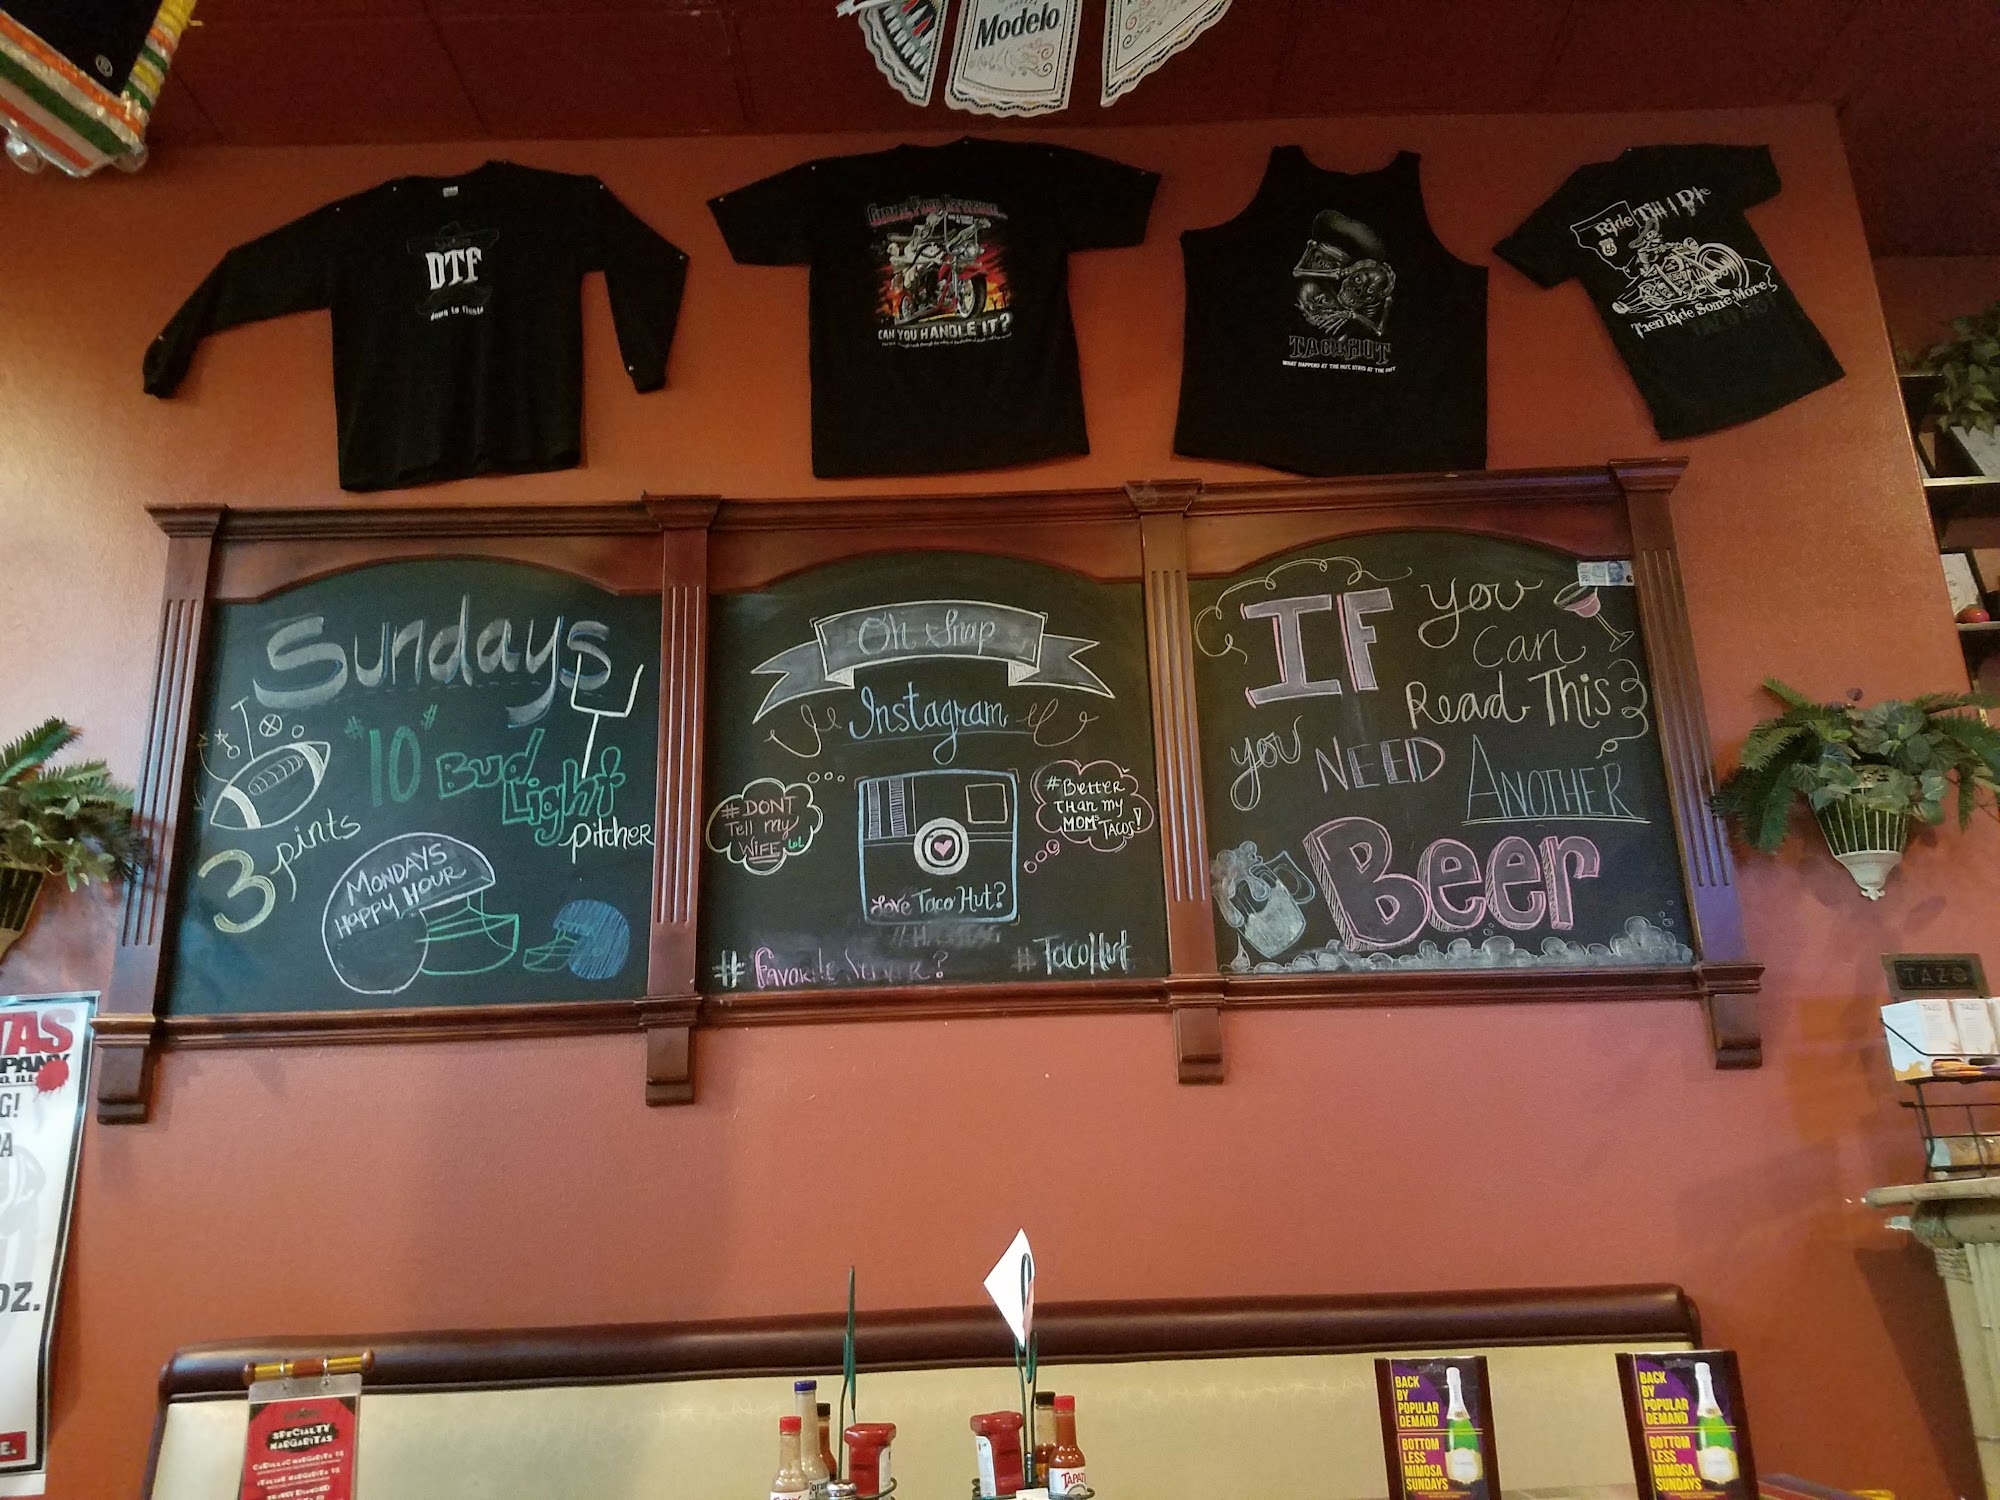 Modelo
DTF
down to fiesta
CAN YOU HANDLE IT?
TACO HUT
WHAT HAPPENS AT THE HUT, STAYS AT THE HUT
Ride Till I Die
Then Ride Some More
TACO HUT
Sundays
"10" Bud Light
pitcher
3 pints
MONDAYS
Happy HOUR
Oh Snap
Instagram
#DONT
Tell my
WIFE LOL
#Better
THAN my
MOM's TACOS!
Love Taco Hut?
#HASHTAG
# FAVORITE SERVER?
#TACOHUT
IF you
can
Read This
you NEED ANOTHER
Beer
TAS
PANY
G!
PA
OZ.
E.
TAZO
SPECIALTY
MARGARITAS
CADILLAC MARGARITA
ITALIAN MARGARITA
TAPATI
BACK
BY
POPULAR
DEMAND
BOTTOM
LESS
MIMOSA
SUNDAYS
BACK
BY
POPULAR
DEMAND
BOTTOM
LESS
MIMOSA
SUNDAYS